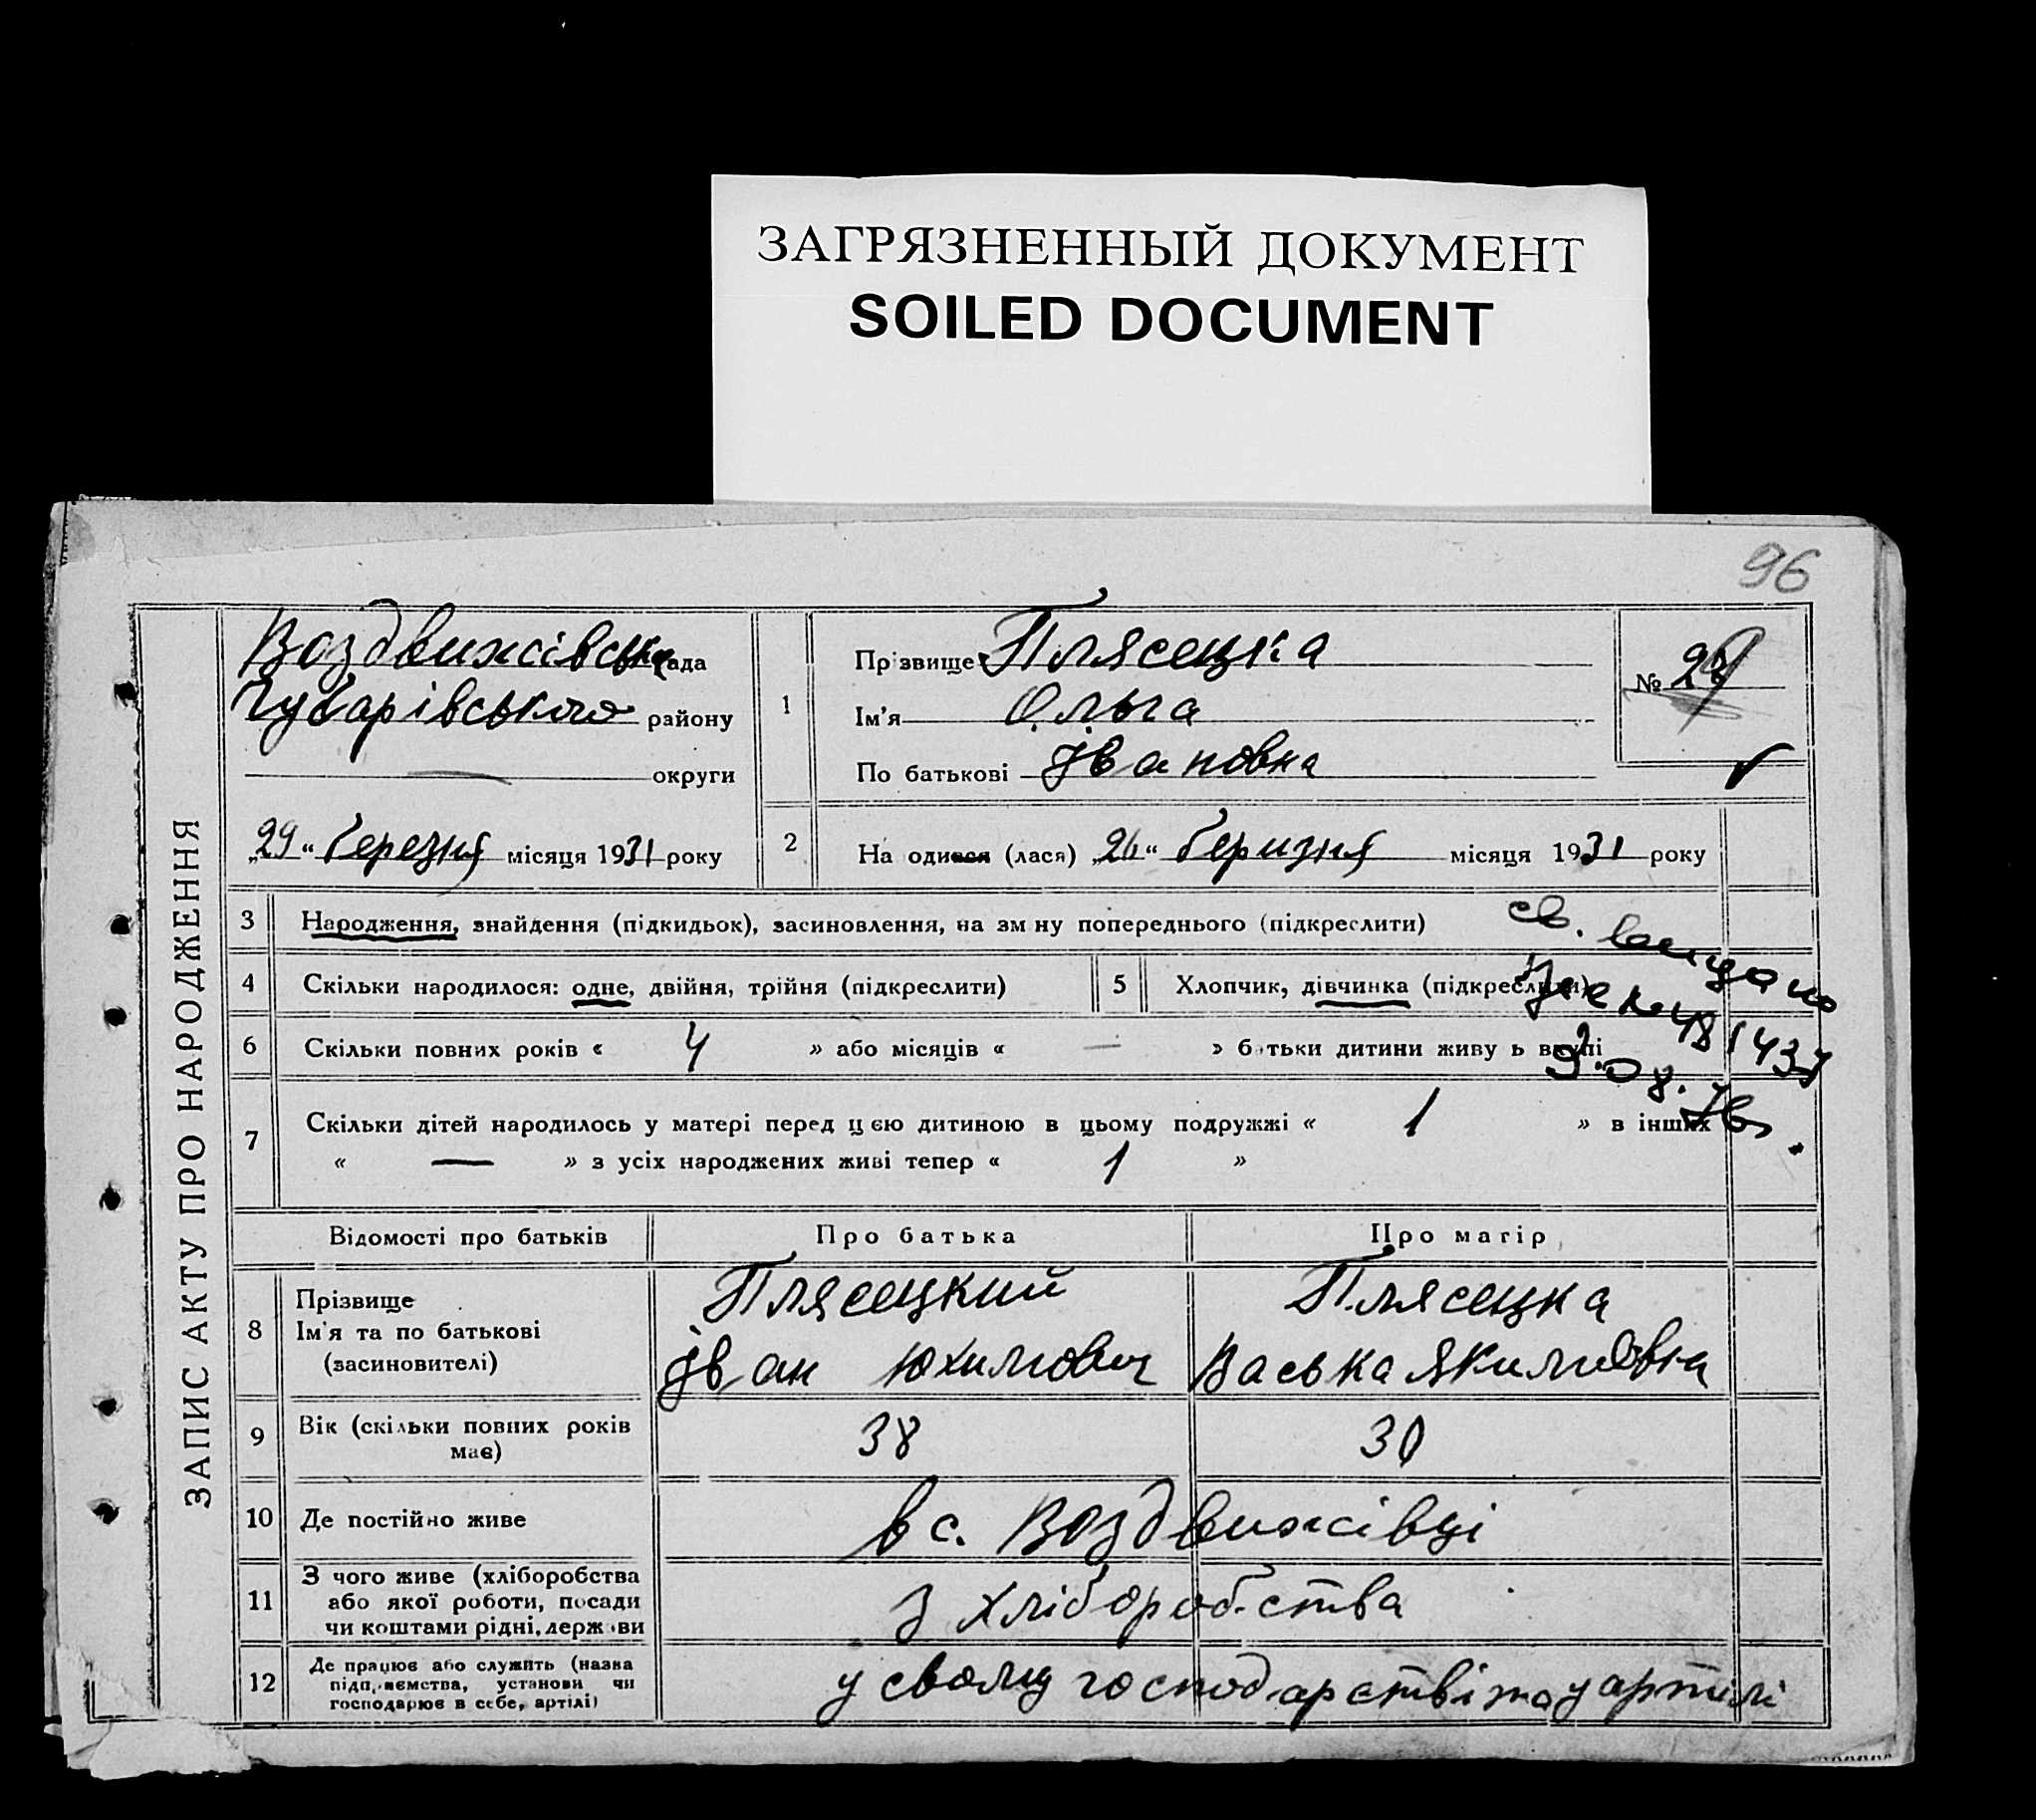 ЗАГРЯЗНЕННЫЙ ДОКУМЕНТ
SOILED DOCUMENT
96
ЗАПИС АКТУ ПРО НАРОДЖЕННЯ
Воздвижівська рада
Чубарівського району
— округи
„29“ березня місяця 1931 року
1
Прізвище Плясецька
Ім'я Ольга
По батькові Івановна
№
2
На одилася (лася) „26“ беризня місяця 1931 року
3 Народження, знайдення (підкидьок), засиновлення, на зм ну попереднього (підкреслити)
св. видано
4 Скільки народилося: одне, двійня, трійня (підкреслити)
5 Хлопчик, дівчинка (підкреслити)
№ 481437
6 Скільки повних років « 4 » або місяців « — » батьки дитини живу ь вкупі
7 Скільки дітей народилось у матері перед цєю дитиною в цьому подружжі « 1 » в інших
« — » з усіх народжених живі тепер « 1 »
Відомості про батьків Про батька Про матір
8 Прізвище
Ім'я та по батькові
(засиновителі)
Плясецкий
Іван Юхимович
Плясецка
Васька Якимовна
9 Вік (скільки повних років
має)
38 30
10 Де постійно живе в с. Воздвижівці
11 З чого живе (хліборобства
або якої роботи, посади
чи коштами рідні, держ ви
з хліборобства
12 Де працює або служить (назва
підприємства, установи чи
господарює в себе, артілі)
у свому господарстві та у артілі